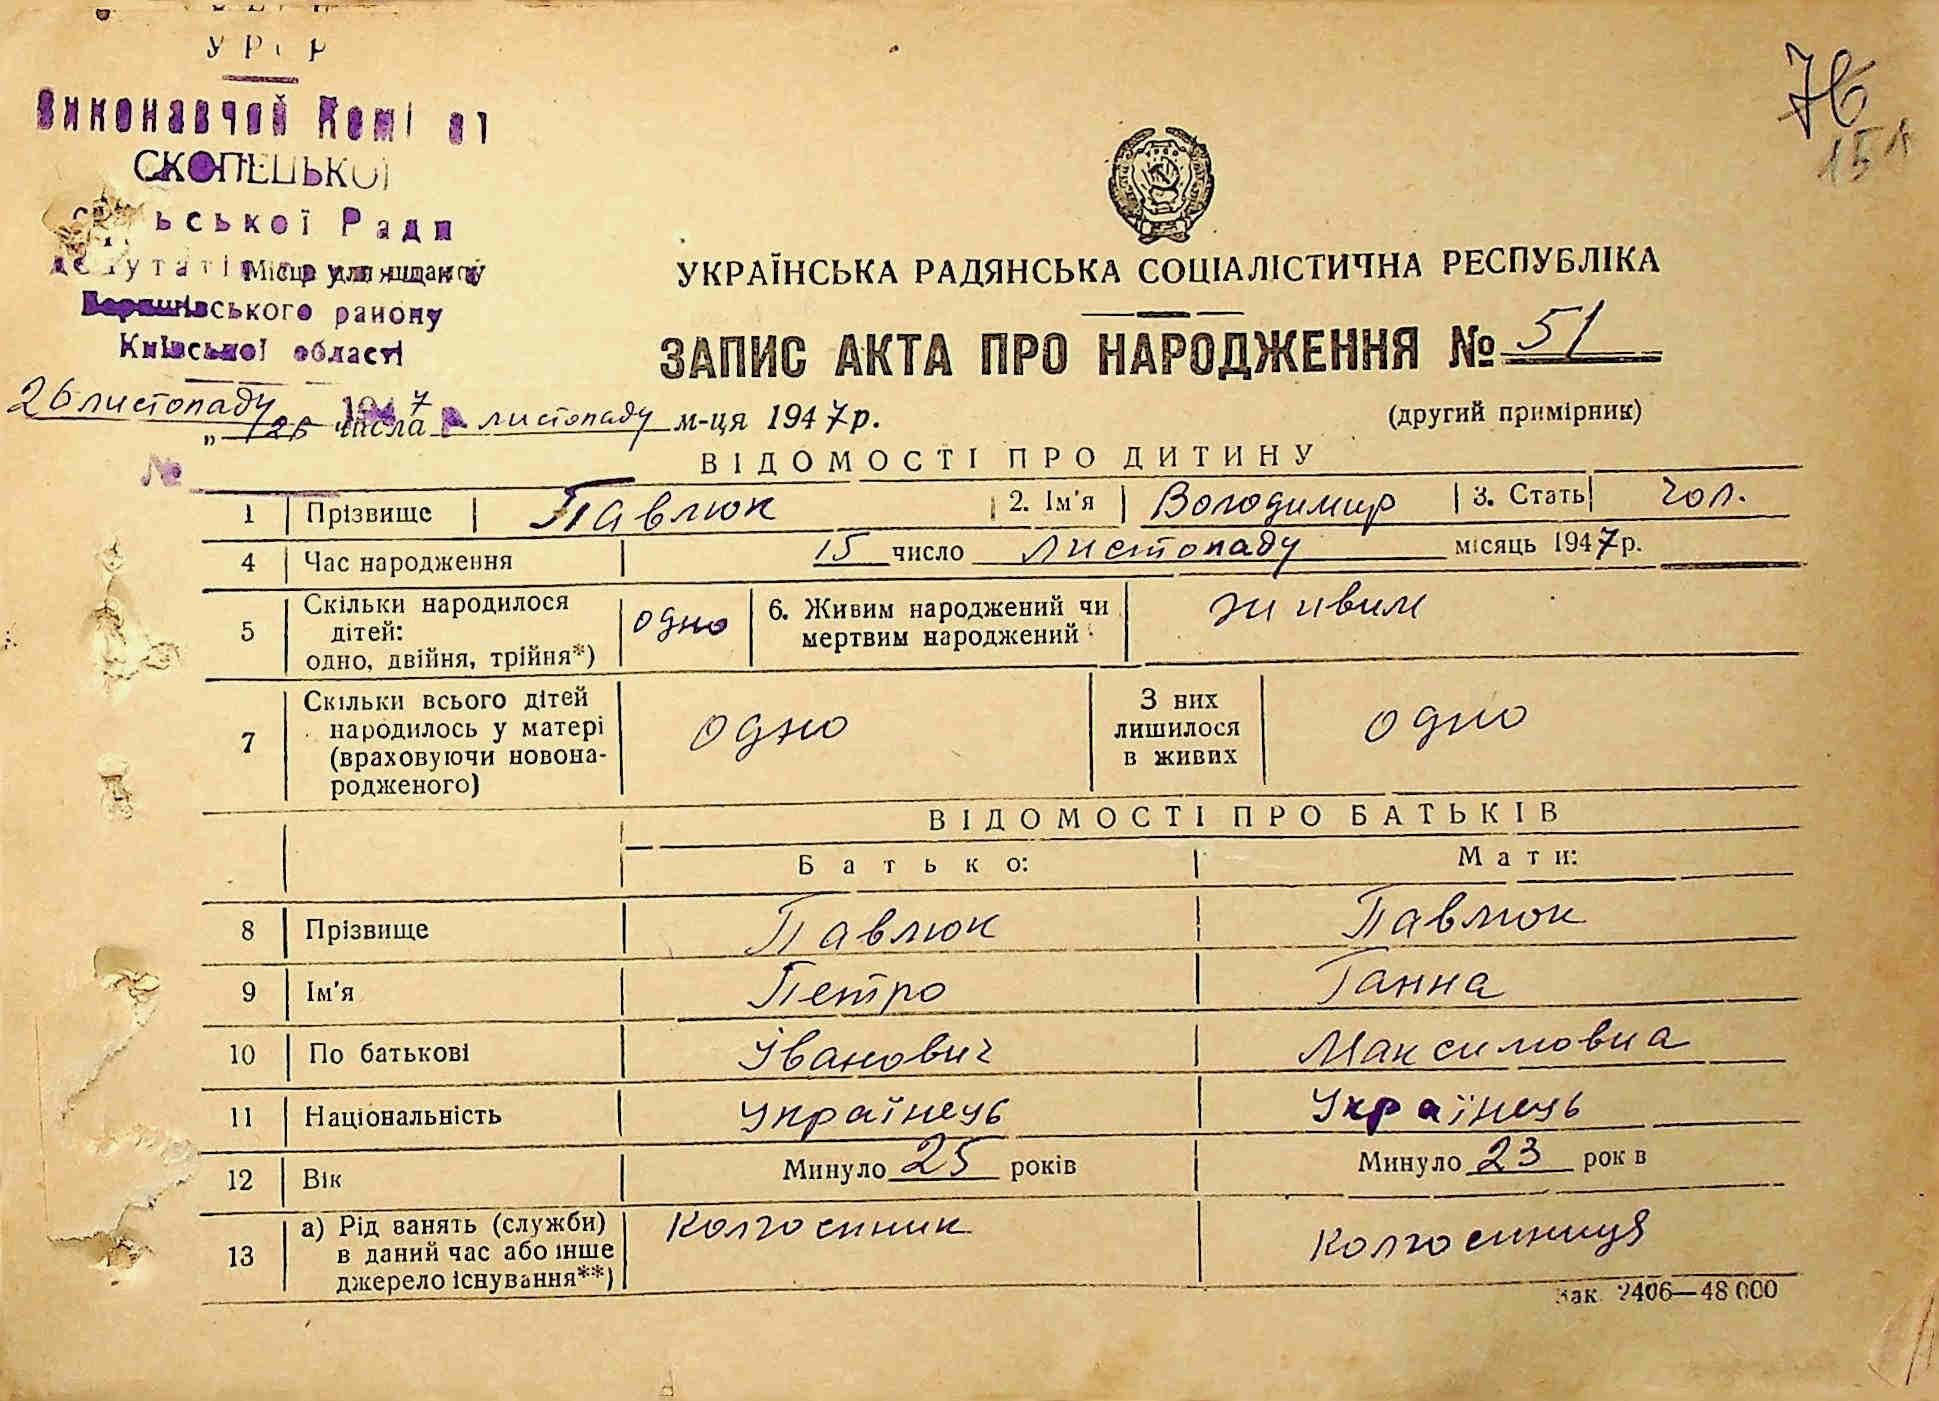 УРСР
Виконавчий Комітет
СКОПЕЦЬКОЇ
сільської Ради
депутатів
Місце для штампу
Баришівського району
Київської області
26 листопаду 1947
УКРАЇНСЬКА РАДЯНСЬКА СОЦІАЛІСТИЧНА РЕСПУБЛІКА
ЗАПИС АКТА ПРО НАРОДЖЕННЯ № 51
„ 26 числа листопаду м-ця 1947 р.
(другий примірник)
№
ВІДОМОСТІ ПРО ДИТИНУ
1 Прізвище Павлюк 2. Ім'я Володимир 3. Стать чол.
4 Час народження 15 число листопаду місяць 1947 р.
5 Скільки народилося дітей: одно, двійня, трійня*) одно 6. Живим народжений чи мертвим народжений живим
7 Скільки всього дітей народилось у матері (враховуючи новонародженого) одно З них лишилося в живих одно
ВІДОМОСТІ ПРО БАТЬКІВ
Батько: Мати:
8 Прізвище Павлюк Павлюк
9 Ім'я Петро Ганна
10 По батькові Іванович Максимовна
11 Національність Українець Українець
12 Вік Минуло 25 років Минуло 23 років
13 а) Рід занять (служби) в даний час або інше джерело існування**) Колгоспник Колгоспниця
Зак. 2406—48 000